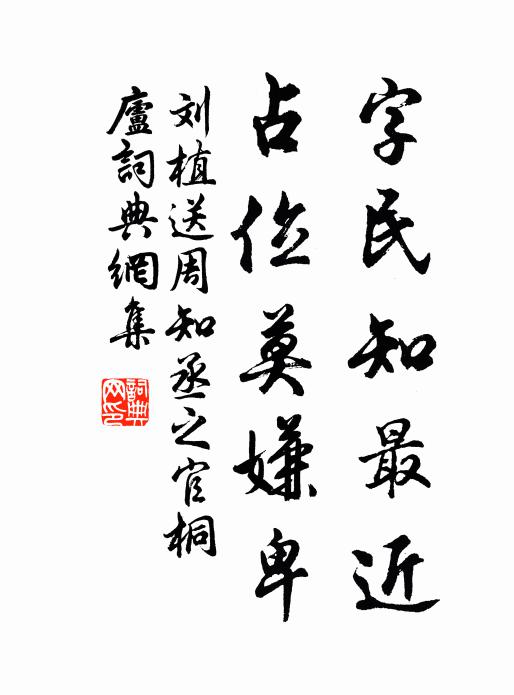 字民知最近
占位莫嫌卑
刘植送周知丞之官桐
廬詞典網集
詞典网印